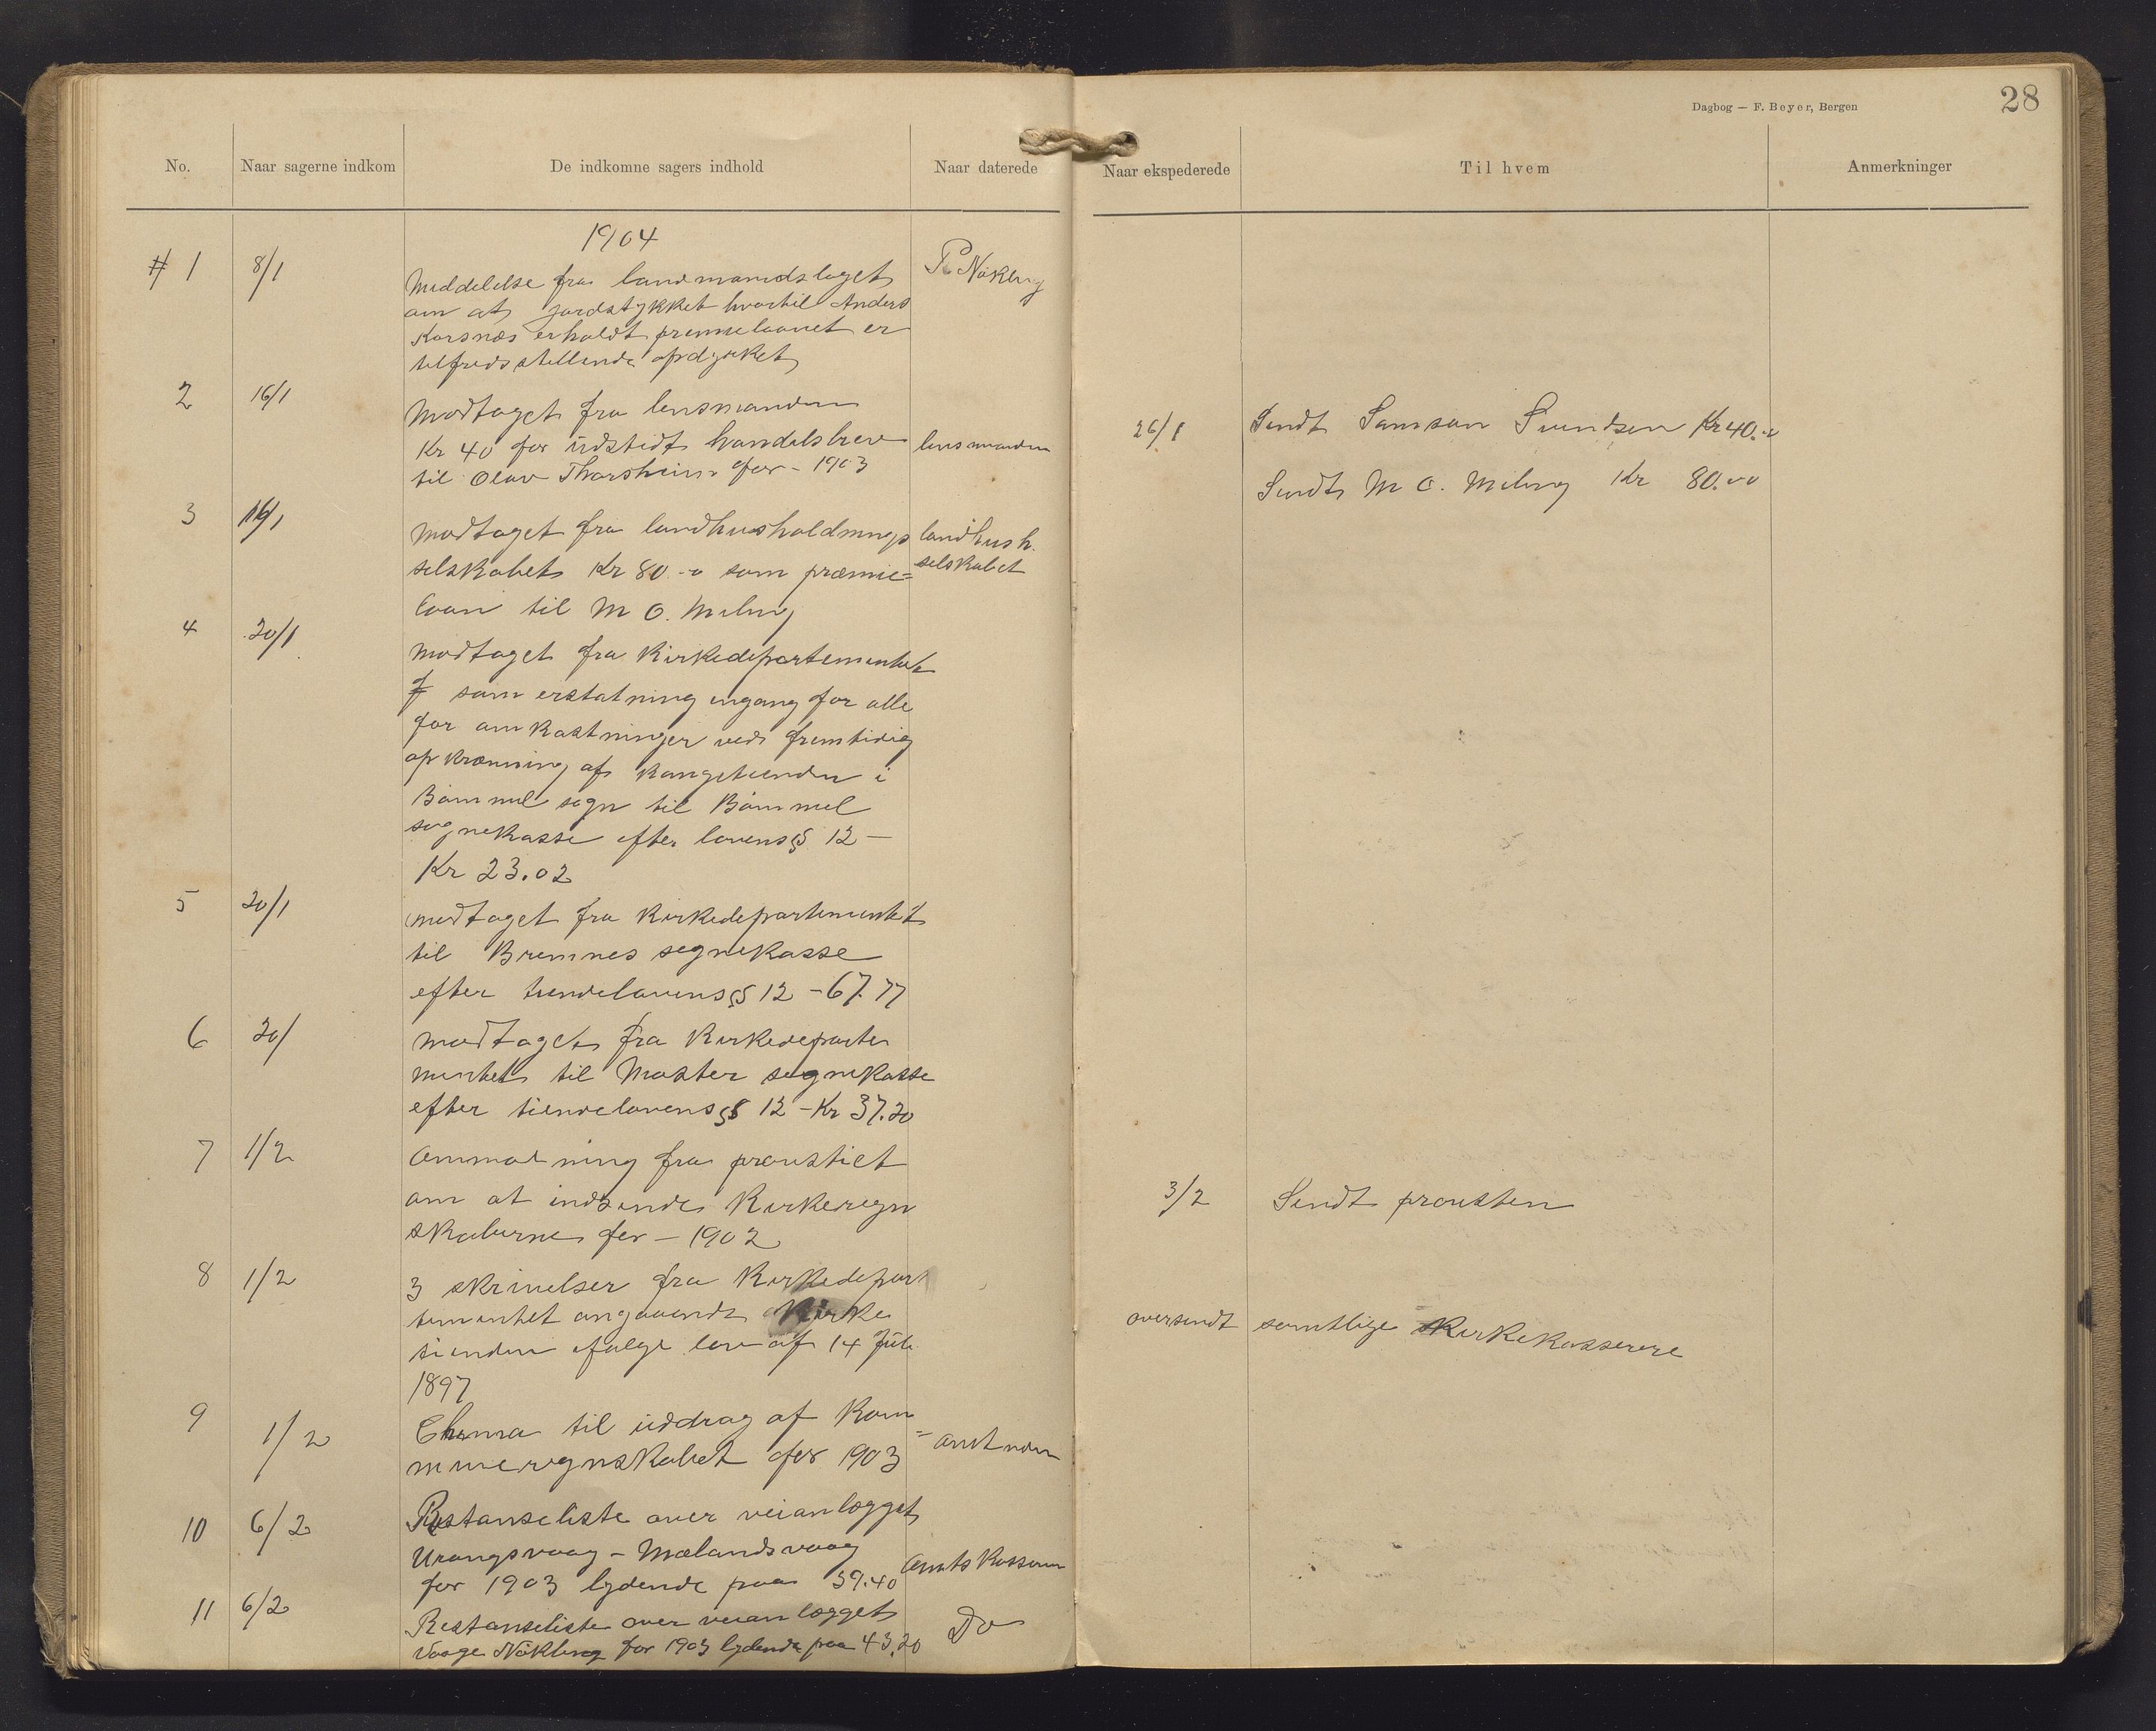 Dagbog — F. Beyer, Bergen
28
No.
Naar sagerne indkom
De indkomne sagers indhold
Naar daterede
Naar ekspederede
Til hvem
Anmerkninger
1904
# 1 8/1 Meddelelse fra landmandslaget P. Nökling
om at jordstykket hvortil Anders
Korsnæs erholdt premielaanet er
tilfredsstillende opdyrket
2 16/1 Modtaget fra lensmanden
Kr 40 for udstedt handelsbrev lensmanden
til Olav Thorsheim for - 1903
26/1 Sendt Samson Svendsen Kr 40.00
Sendt M O. Meling Kr 80.00
3 16/1 modtaget fra landhusholdnings landhush.
selskabet Kr 80.-0 som præmie= selskabet
laan til M O. Meling
4 20/1 modtaget fra Kirkedepartementet
f som erstatning engang for alle
for omkostninger ved fremtidig
opkrævning af Kongetienden i
Bömmel sogn til Bömmel
sognekasse efter lovens § 12 —
Kr 23.02
5 20/1 modtaget fra Kirkedepartementet
til Bremnes sognekasse
efter tiendelovens § 12 - 67.77
6 20/ modtaget fra Kirkedeparte
mentet til Moster sognekasse
efter tiendelovens § 12 - Kr 37.20
7 1/2 Anmodning fra proustiet
om at indsende Kirkeregn
skaberne for - 1902
3/2 Sendt prousten
8 1/2 3 skrivelser fra Kirkedepar
tementet angaaende Kirke
tienden ifølge lov af 14 Juli
1897
oversendt samtlige Kirkekasserere
9 1/2 Chema til uddrag af Kom
muneregnskabet for 1903 = amtmden
10 6/2 Restanseliste over veianlægget
Urangsvaag - Mælandsvaag
for 1903 lydende paa 39.40 Amtskasseren
11 6/2 Restanseliste over veianlægget Do
Vaage Nökling for 1903 lydende paa 43.20